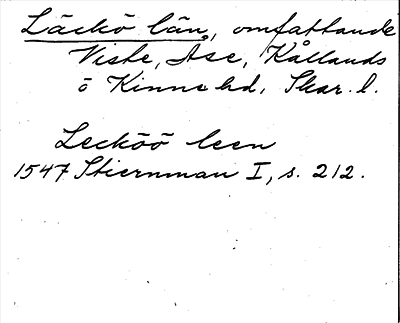 Läckö län, omfattande
Viste, Åse, Kållands
o Kinne hd, Skar. l.
Lecköö leen
1547 Stiernman I, s. 212.